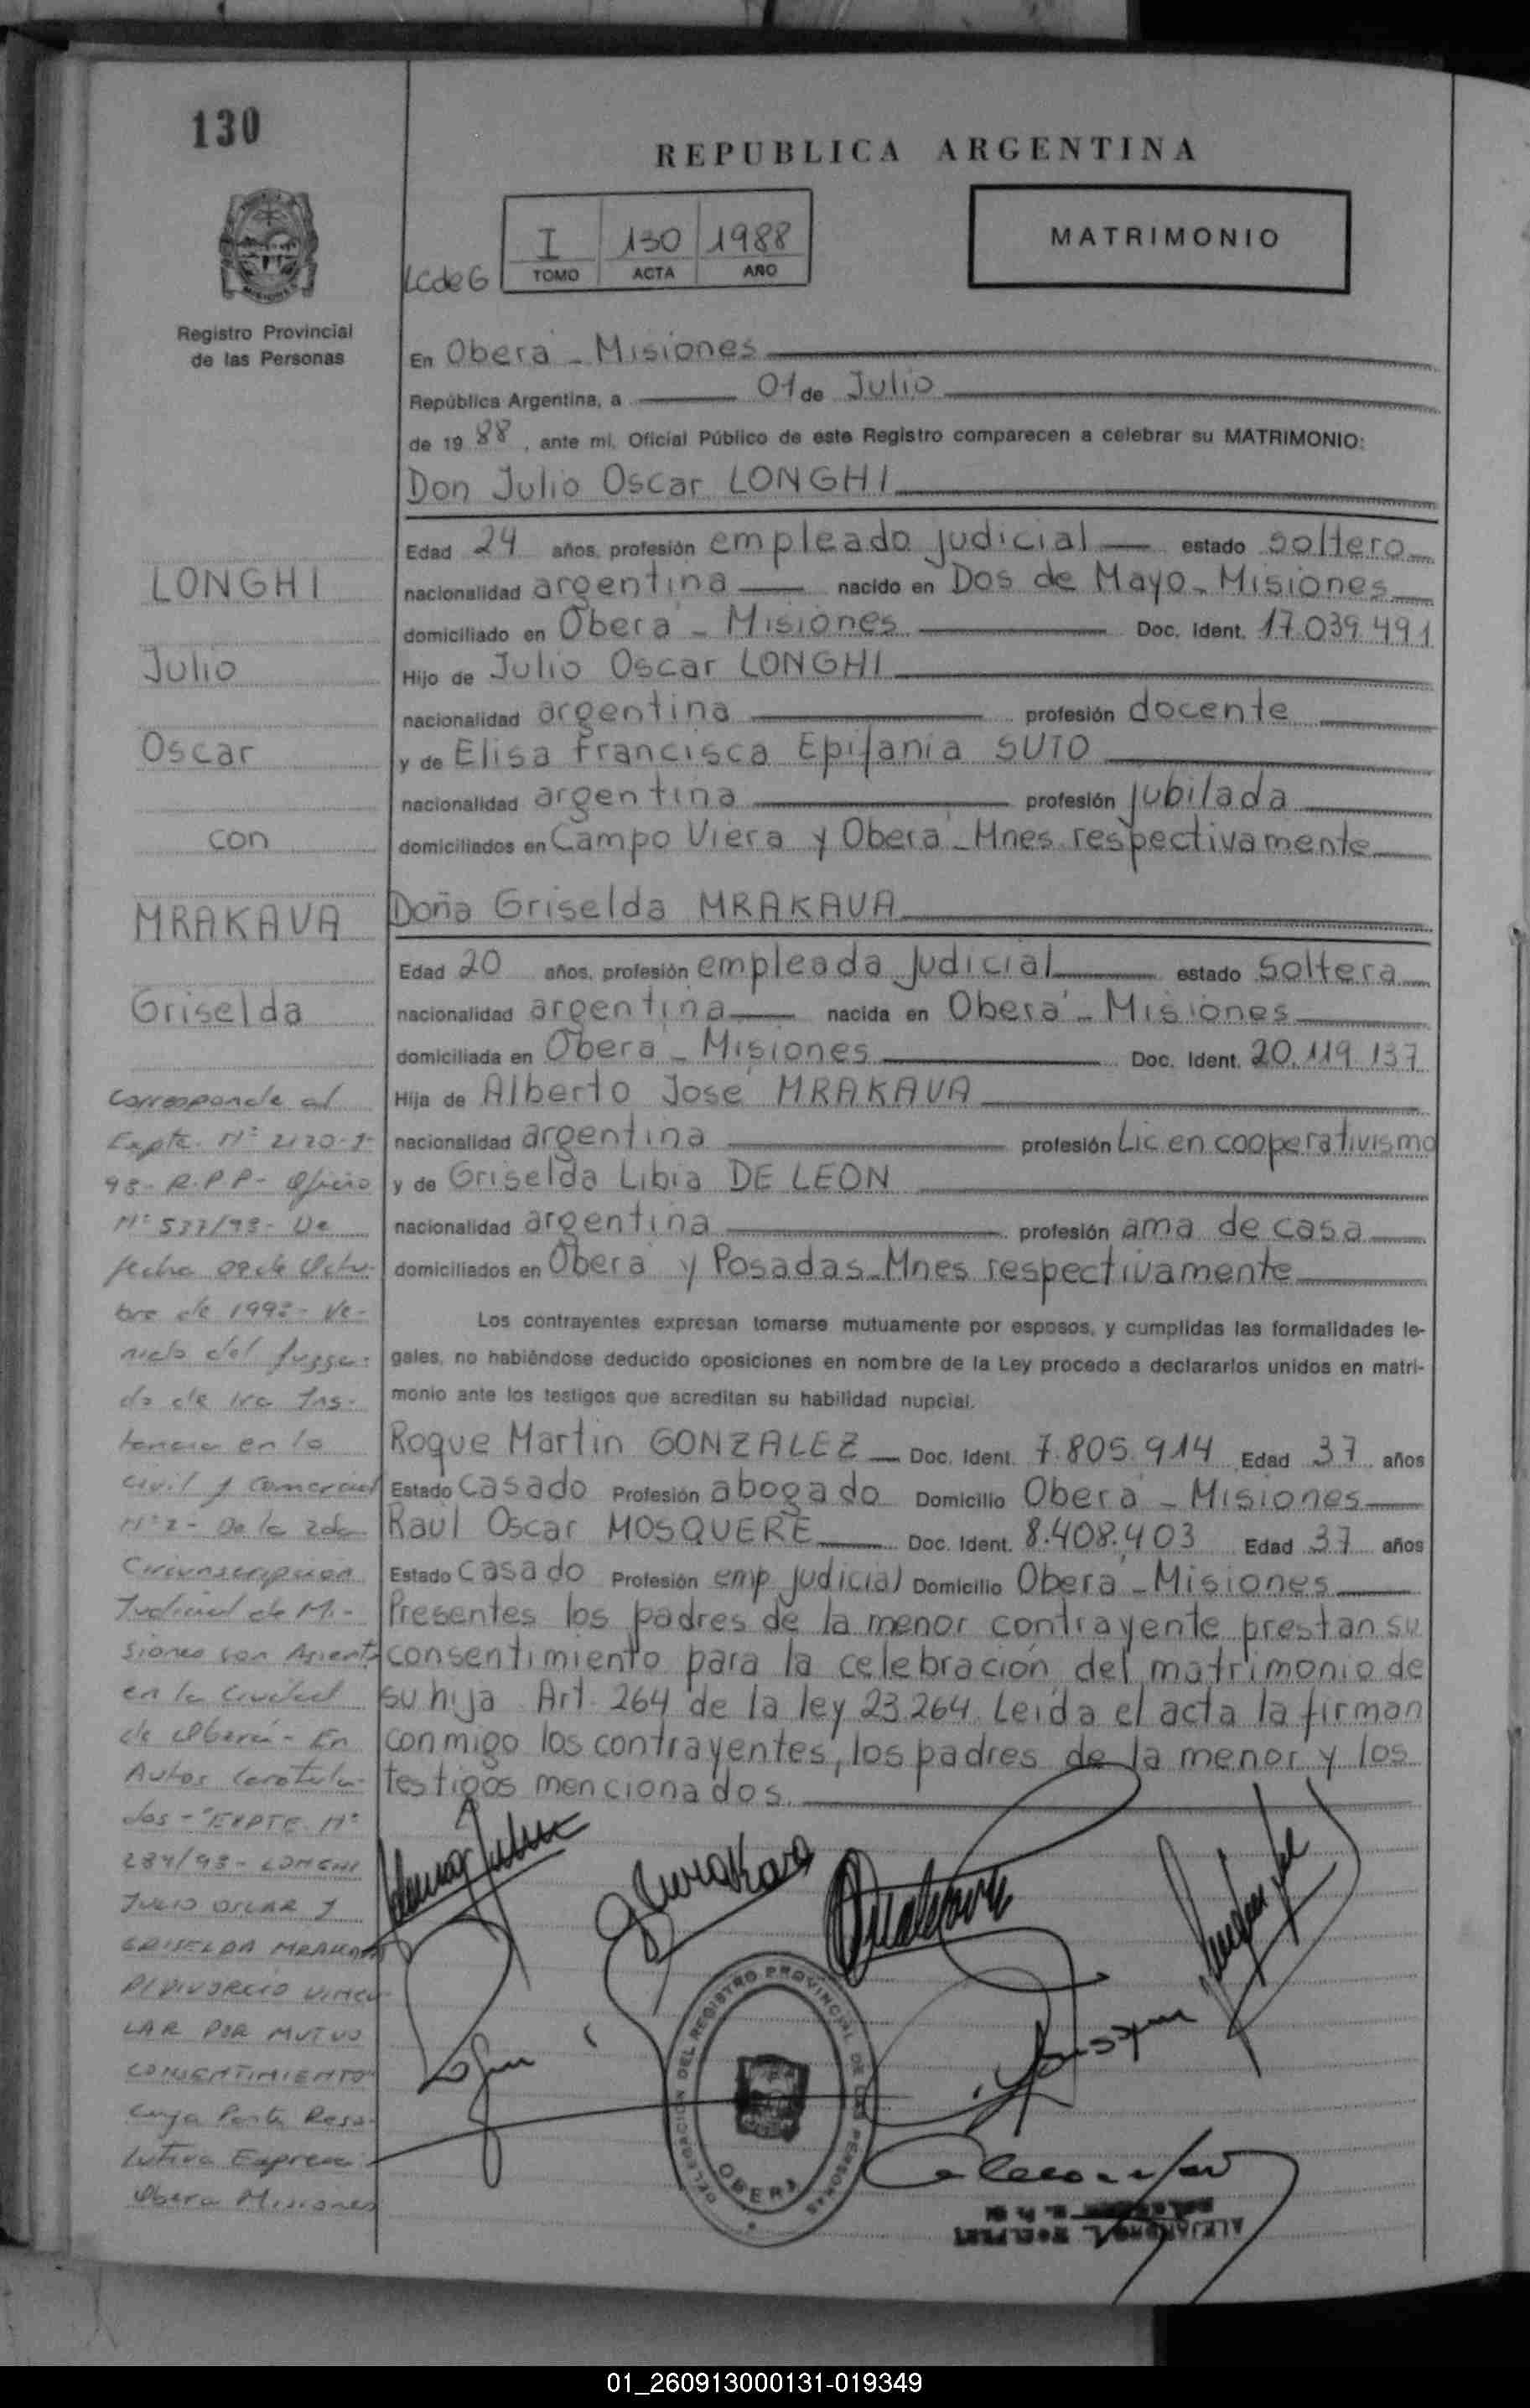 130
REPUBLICA ARGENTINA
I 130 1988
TOMO ACTA AÑO
LCdeG
MATRIMONIO
Registro Provincial
de las Personas
En Oberá - Misiones
República Argentina, a 01 de Julio
de 19 88, ante mi, Oficial Público de este Registro comparecen a celebrar su MATRIMONIO:
Don Julio Oscar LONGHI
Edad 24 años, profesión empleado judicial estado soltero
nacionalidad argentina nacido en Dos de Mayo - Misiones
domiciliado en Oberá - Misiones Doc. Ident. 17.039.491
Hijo de Julio Oscar LONGHI
nacionalidad argentina profesión docente
y de Elisa Francisca Epifania SUTO
nacionalidad argentina profesión jubilada
domiciliados en Campo Viera y Oberá - Mnes respectivamente
Doña Griselda MRAKAVA
Edad 20 años, profesión empleada judicial estado soltera
nacionalidad argentina nacida en Oberá - Misiones
domiciliada en Oberá - Misiones Doc. Ident. 20.119.137
Hija de Alberto José MRAKAVA
nacionalidad argentina profesión Lic en cooperativismo
y de Griselda Libia DE LEON
nacionalidad argentina profesión ama de casa
domiciliados en Oberá y Posadas - Mnes respectivamente
Los contrayentes expresan tomarse mutuamente por esposos, y cumplidas las formalidades le-
gales, no habiéndose deducido oposiciones en nombre de la Ley procedo a declararlos unidos en matri-
monio ante los testigos que acreditan su habilidad nupcial.
Roque Martin GONZALEZ Doc. Ident. 7.805.914 Edad 37 años
Estado casado Profesión abogado Domicilio Oberá - Misiones
Raúl Oscar MOSQUERE Doc. Ident. 8.408.403 Edad 37 años
Estado casado Profesión emp judicial Domicilio Oberá - Misiones
Presentes los padres de la menor contrayente prestan su
consentimiento para la celebración del matrimonio de
su hija Art. 264 de la ley 23.264. Leída el acta la firman
conmigo los contrayentes, los padres de la menor y los
testigos mencionados.
LONGHI
Julio
Oscar
con
MRAKAVA
Griselda
Corresponde al
Expte. Nº
R.P.P- Oficio
De
fecha de Octu-
bre de Ve-
nido del Juzga-
do de 1ra Ins-
tancia en lo
Civil y Comercial
Nº 2 - De la 2da
Circunscripcion
Judicial de Mi-
siones con Asiento
en la Ciudad
de Oberá - En
Autos Caratula-
dos - "EXPTE. Nº
LONGHI
JULIO OSCAR Y
GRISELDA MRAKAVA
P/DIVORCIO VINCU-
LAR POR MUTUO
CONSENTIMIENTO"
Cuya Parte Reso-
lutiva Expresa:
Oberá Misiones
DELEGACION DEL REGISTRO PROVINCIAL DE LAS PERSONAS
OBERA
01_260913000131-019349